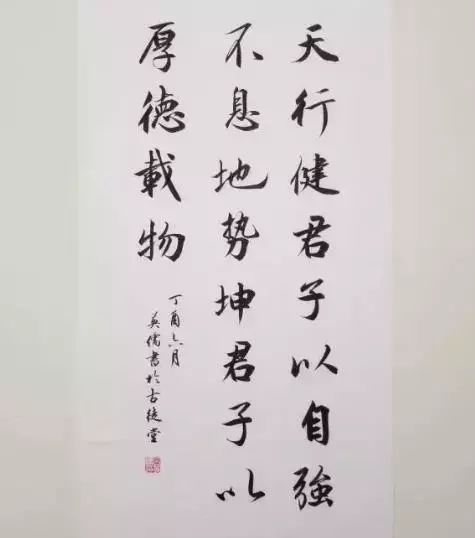 天行健君子以自強
不息地势坤君子以
厚德載物
丁酉六月
英儒書於古徒堂